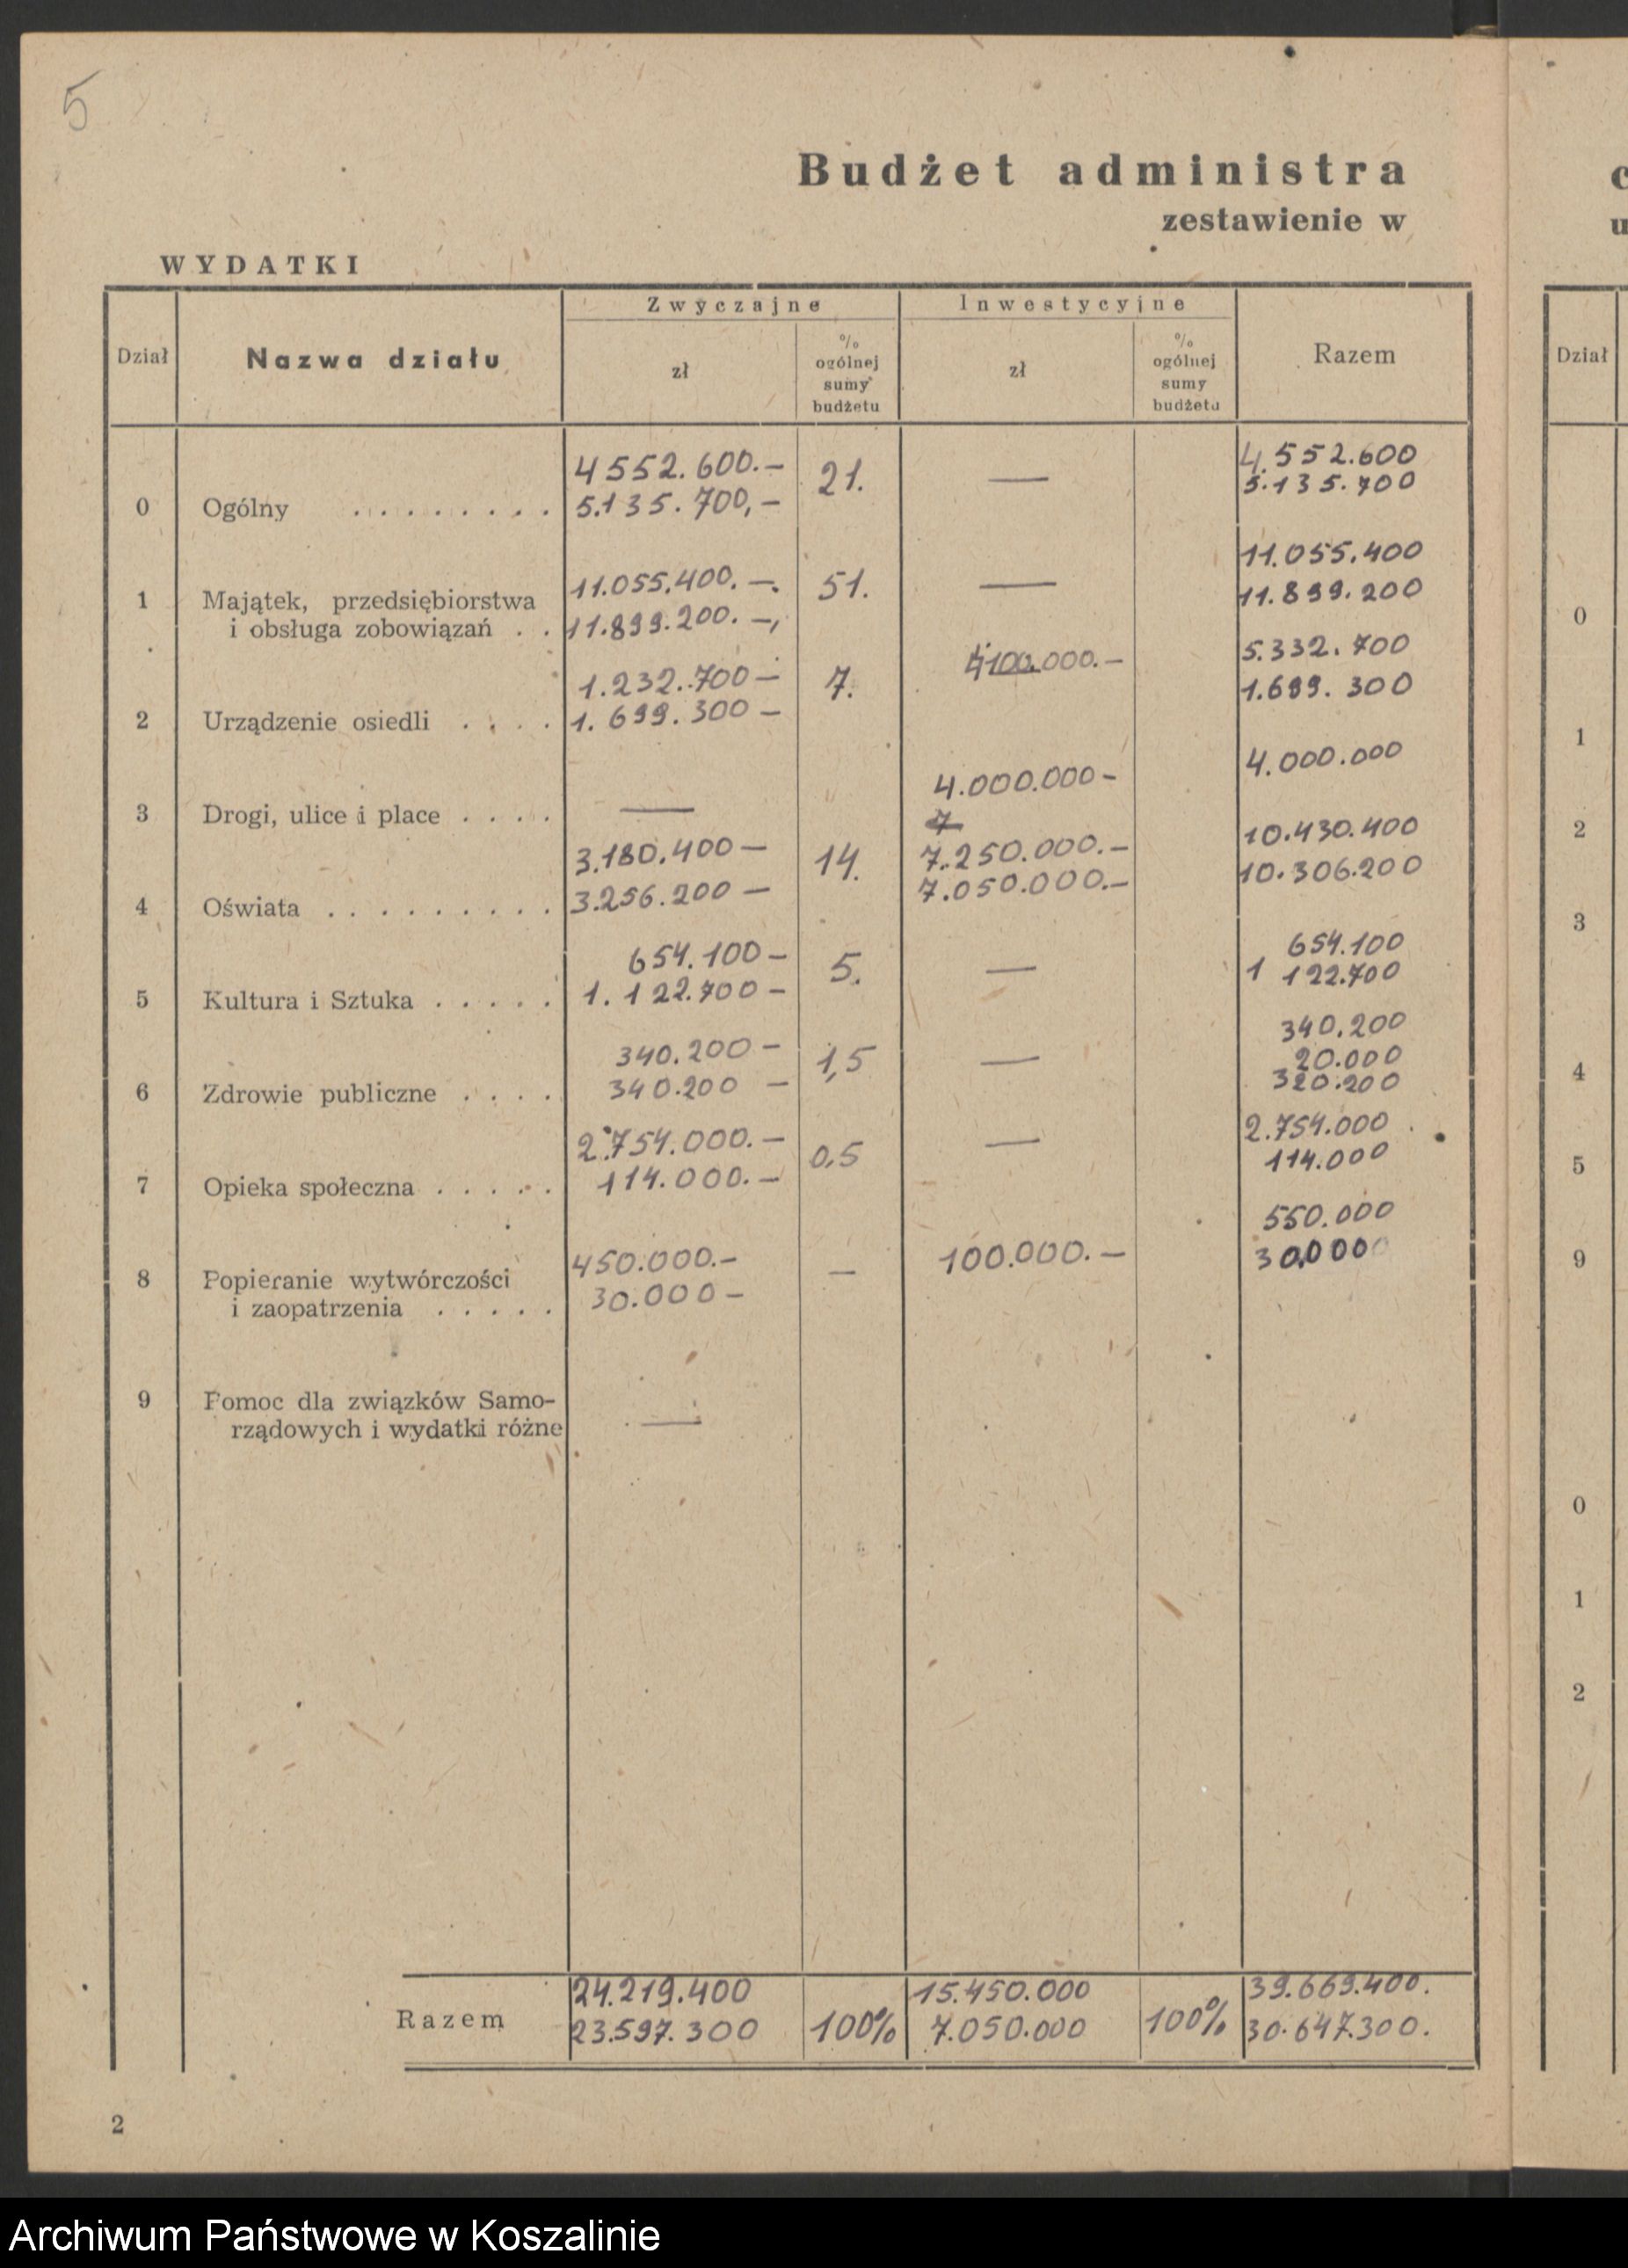 5
Budżet administra
zestawienie w
WYDATKI
Dział
Nazwa działu
Zwyczajne
zł
% ogólnej sumy budżetu
Inwestycyjne
zł
% ogólnej sumy budżetu
Razem
0 Ogólny . . . . . . . .
4552.600.— 21. — 4.552.600
5.135.700,— 5.135.700
1 Majątek, przedsiębiorstwa
i obsługa zobowiązań . .
11.055.400.— 51. — 11.055.400
11.899.200.— 11.899.200
2 Urządzenie osiedli . . . .
1.232.700— 7. 4100.000.— 5.332.700
1.699.300— 1.699.300
3 Drogi, ulice i place . . . .
— 4.000.000— 4.000.000
7
4 Oświata . . . . . . . . .
3.180.400— 14. 7.250.000.— 10.430.400
3.256.200— 7.050.000.— 10.306.200
5 Kultura i Sztuka . . . . .
654.100— 5. — 654.100
1.122.700— 1 122.700
6 Zdrowie publiczne . . . .
340.200— 1,5 — 340.200
340.200— 20.000
320.200
7 Opieka społeczna . . . . .
2.754.000.— 0,5 — 2.754.000
114.000.— 114.000
8 Popieranie wytwórczości
i zaopatrzenia . . . . .
450.000.— — 100.000.— 550.000
30.000— 30.000
9 Pomoc dla związków Samo-
rządowych i wydatki różne
—
Razem
24.219.400 15.450.000 39.669.400.
23.597.300 100% 7.050.000 100% 30.647.300.
2
c
u
Dział
0
1
2
3
4
5
9
0
1
2
Archiwum Państwowe w Koszalinie